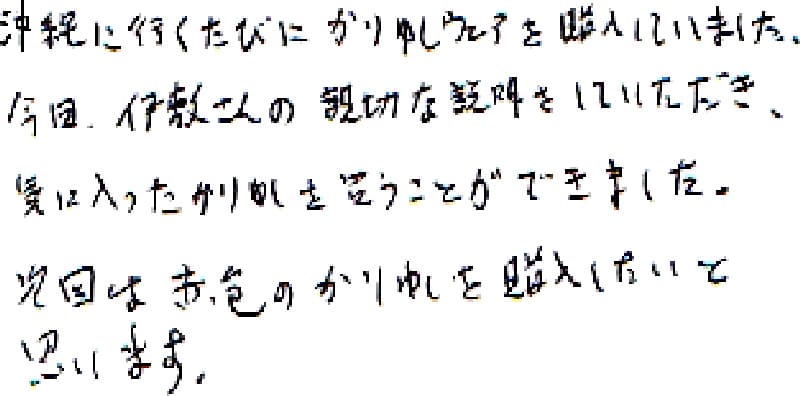 沖縄に行くたびにかりゆしウェアを購入していました。
今回、伊敷さんの親切な説明をしていただき、
気に入ったかりゆしを買うことができました。
次回は赤色のかりゆしを購入したいと
思います。